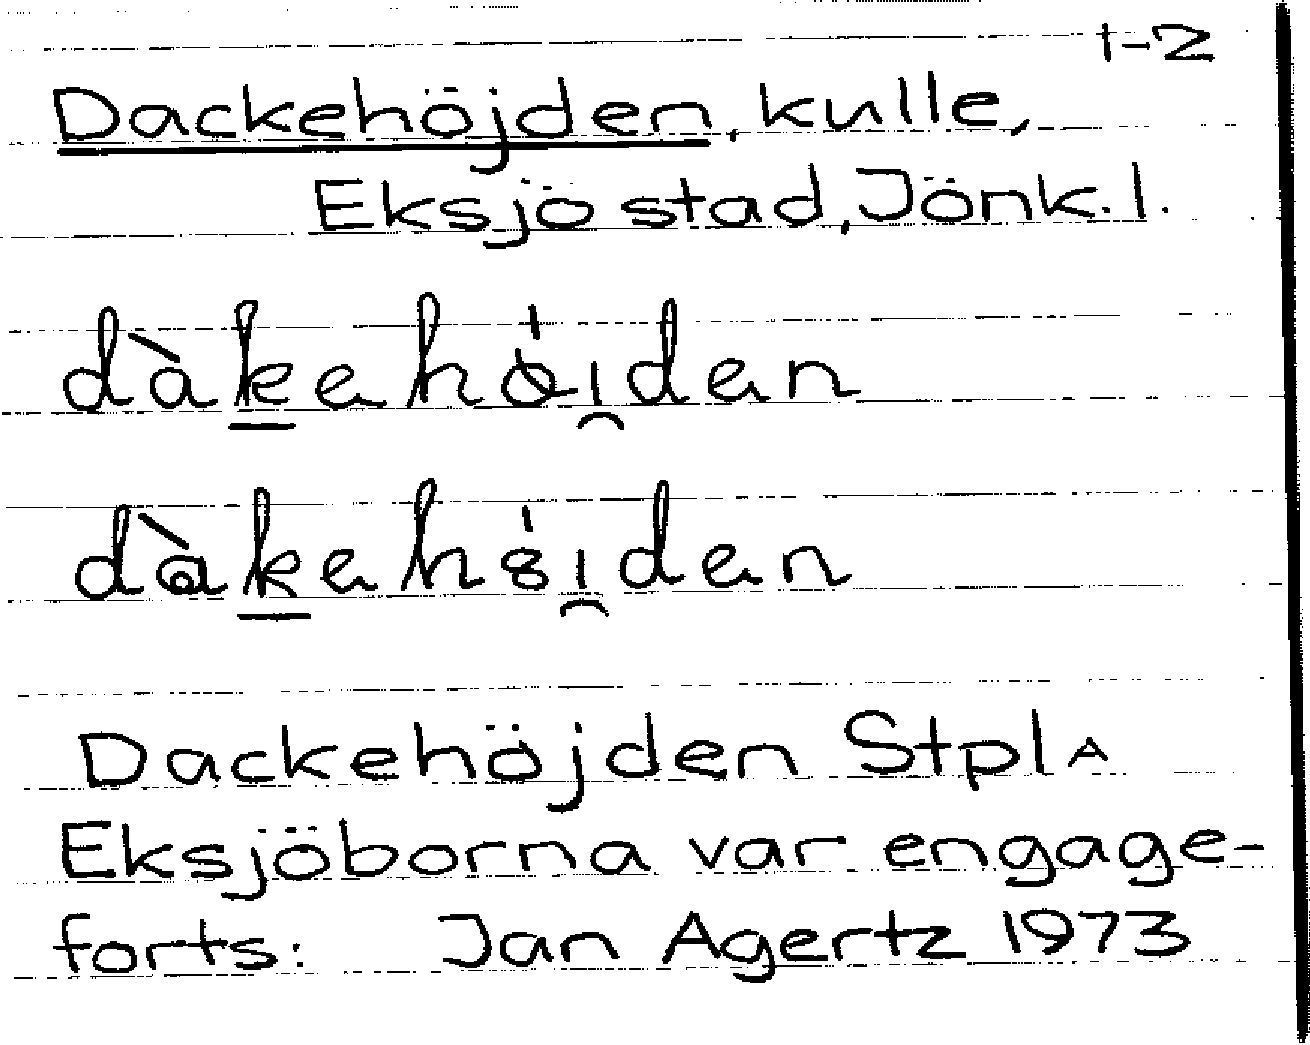 1-2
Dackehöjden, kulle,
Eksjö stad, Jönk. l.
dàkehöi̯den
dàkehöi̯den
Dackehöjden Stpl A
Eksjöborna var engage-
forts: Jan Agertz 1973